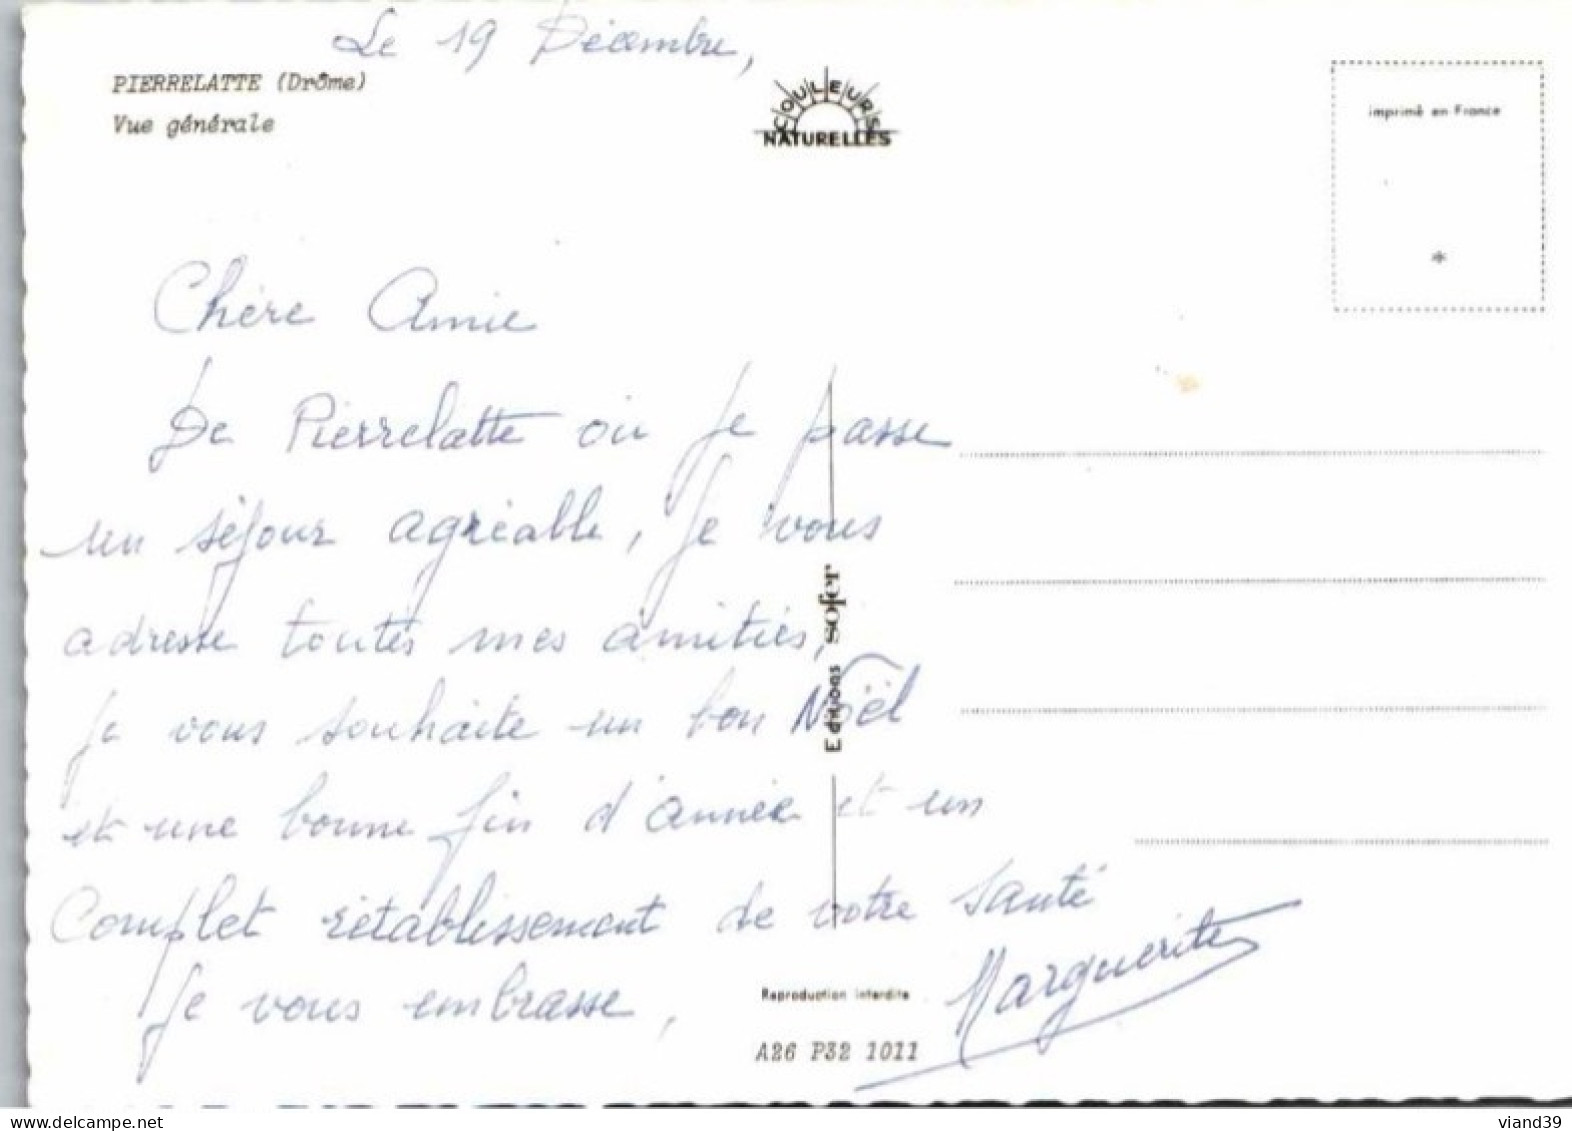 Le 19 Décembre,
PIERRELATTE (Drôme)
Vue générale
COULEURS
NATURELLES
imprimé en France
*
Chère Amie
De Pierrelatte où je passe
un séjour agréable, je vous
adresse toutes mes amitiés,
je vous souhaite un bon Noël
et une bonne fin d'année et un
Complet rétablissement de votre santé
Je vous embrasse,
Marguerite
Editions sofer
Reproduction interdite
A26 P32 1011
viand39